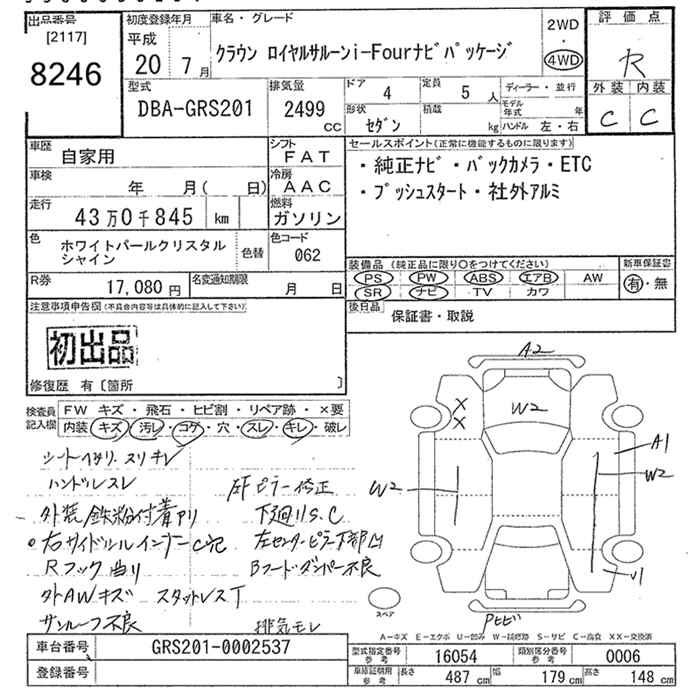 出品番号
[2117]
8246
初度登録年月
平成
20年7月
車名・グレード
クラウン ロイヤルサルーンi-Fourナビパッケージ
2WD
・
4WD
評価点
R
外装 内装
C C
型式
DBA-GRS201
排気量
2499
CC
ドア
4
定員
5人
形状
セダン
積載
kg
ディーラー・並行
モデル年式 年
ハンドル 左・右
車歴
自家用
シフト
FAT
車検
年 月( 日)
冷房
AAC
走行
43万0千845 km
燃料
ガソリン
色
ホワイトパールクリスタル
シャイン
色替
色コード
062
R券
17,080円
名変通知期限
月 日
セールスポイント(正常に機能するものに限ります)
・純正ナビ・バックカメラ・ETC
・プッシュスタート・社外アルミ
装備品 (純正品に限り○をつけてください)
PS PW ABS エアB AW
SR ナビ TV カワ
新車保証書
有・無
後日品
保証書・取説
注意事項申告欄(不具合内容等は具体的に記入して下さい)
初出品
修復歴 有〔箇所 〕
検査員記入欄
FW キズ・飛石・ヒビ割・リペア跡・×要
内装 キズ・汚レ・コゲ・穴・スレ・キレ・破レ
シートヘタリ、スリキレ
ハンドルスレ
外装鉄粉付着アリ
・右サイドシルインナーC穴
Rフック曲り
外AWキズ スタットレスT
サンルーフ不良
左Fピラー修正
下廻りS.C
左センターピラー下部凹
Bフード・ダンパー不良
排気モレ
A2
W2
X
X
A1
W2
W2
U1
スペア
A-キズ E-エクボ U-凹み W-補修跡 S-サビ C-腐食 XX-交換済
車台番号
GRS201-0002537
登録番号
型式指定番号
参考
16054
類別区分番号
参考
0006
車庫証明用
参考
長さ 487cm
幅 179cm
高さ 148cm